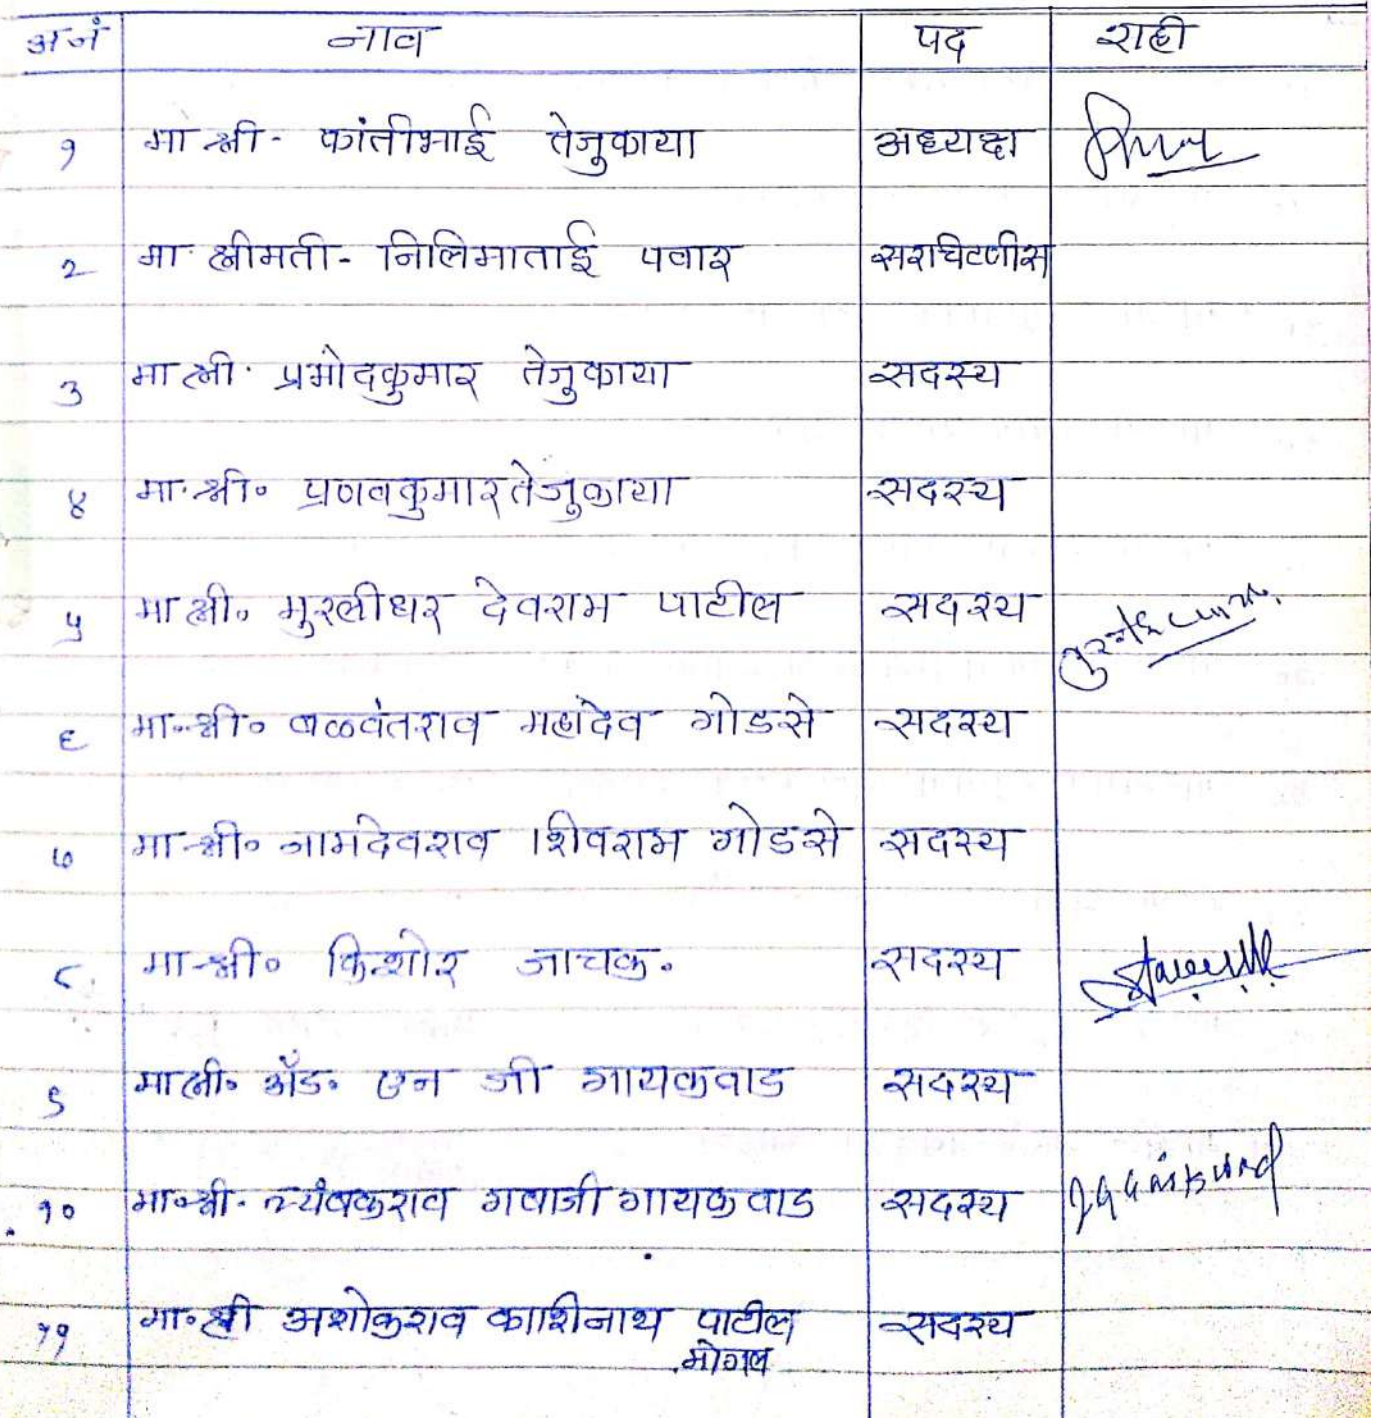 अ.नं नाव पद सही
१ मा श्री- कांतीभाई तेजुकाया अध्यक्ष
२ मा. श्रीमती- निलिमाताई पवार सरचिटणीस
३ मा श्री. प्रमोदकुमार तेजुकाया सदस्य
४ मा.श्री. प्रणवकुमार तेजुकाया सदस्य
५ मा श्री. मुरलीधर देवराम पाटील सदस्य
६ मा.श्री. बळवंतराव महादेव गोडसे सदस्य
७ मा.श्री. नामदेवराव शिवराम गोडसे सदस्य
८ मा.श्री. किशोर जाचक. सदस्य
९ मा श्री. अॅड. एन जी गायकवाड सदस्य
१० मा.श्री. त्र्यंबकराव गबाजी गायकवाड सदस्य
११ मा.श्री अशोकराव काशिनाथ पाटील सदस्य
मोगल